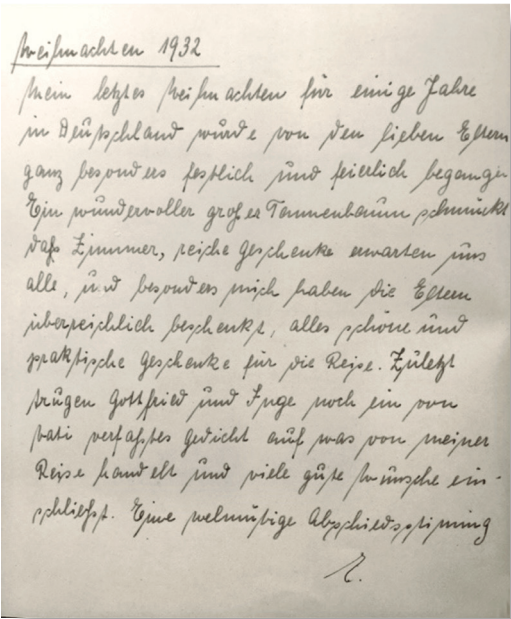 Weihnachten 1932
Mein letztes Weihnachten für einige Jahre
in Deutschland wurde von den lieben Eltern
ganz besonders festlich und feierlich begangen
Ein wundervoller großer Tannenbaum schmückt
daß Zimmer, reiche Geschenke erwarten uns
alle, und besonders mich haben die Eltern
überreichlich beschenkt, alles schöne und
praktische Geschenke für die Reise. Zuletzt
trugen Gottfried und Inge noch ein von
Vati verfaßtes Gedicht auf was von meiner
Reise handelt und viele gute Wünsche ein-
schließt. Eine welmütige Abschiedsstimung